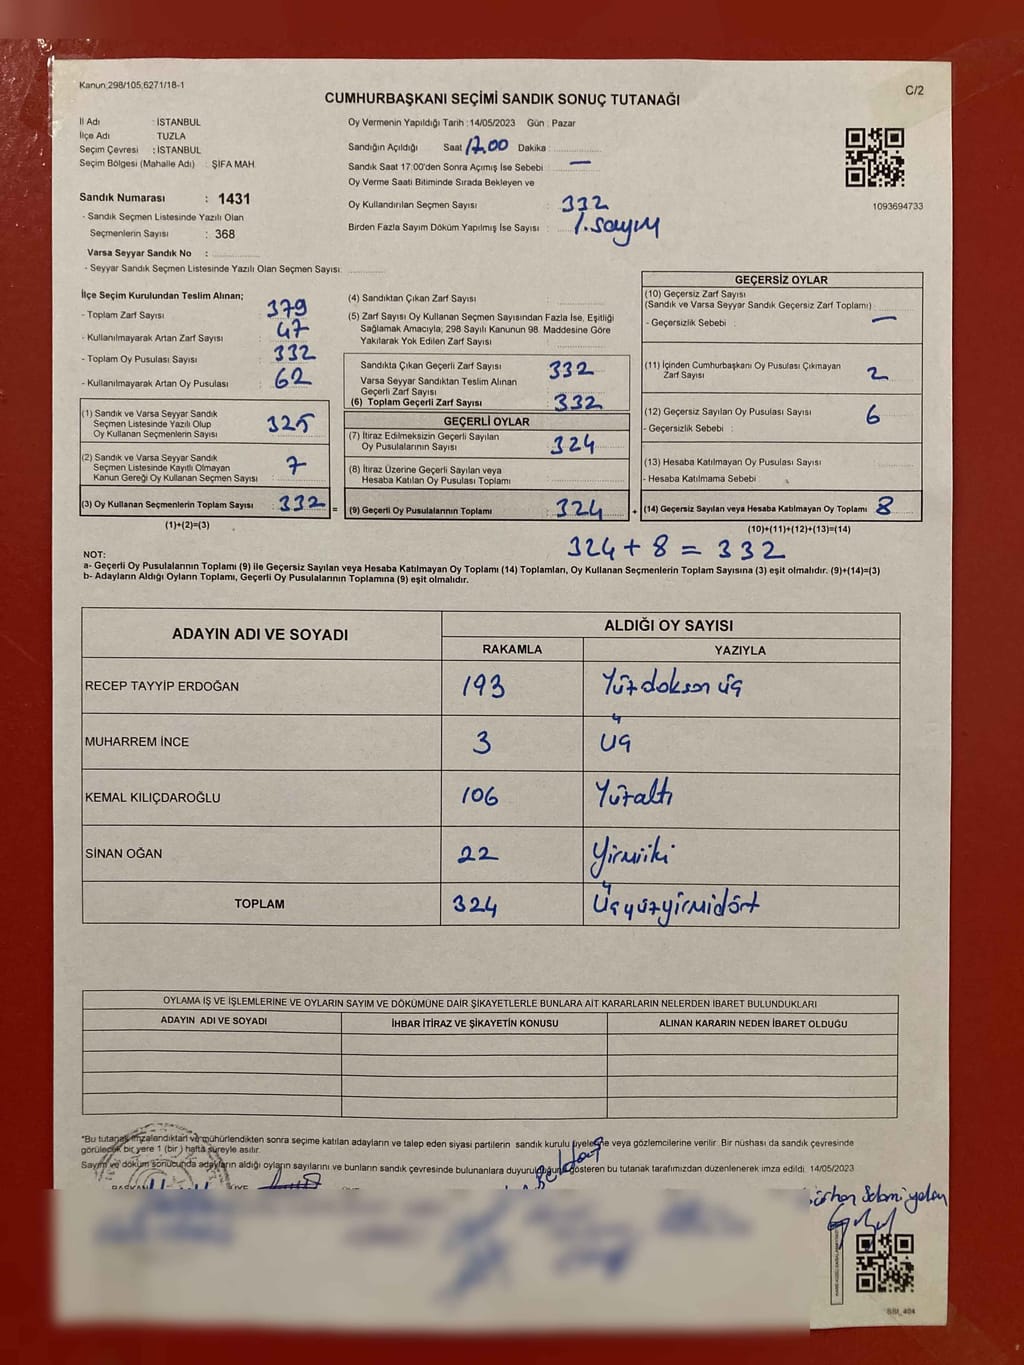 Kanun;298/105;6271/18-1
C/2
CUMHURBAŞKANI SEÇİMİ SANDIK SONUÇ TUTANAĞI
İl Adı : İSTANBUL
İlçe Adı TUZLA
Seçim Çevresi : İSTANBUL
Seçim Bölgesi (Mahalle Adı) : ŞİFA MAH
Sandık Numarası : 1431
- Sandık Seçmen Listesinde Yazılı Olan
Seçmenlerin Sayısı : 368
Varsa Seyyar Sandık No :
- Seyyar Sandık Seçmen Listesinde Yazılı Olan Seçmen Sayısı:
Oy Vermenin Yapıldığı Tarih : 14/05/2023 Gün : Pazar
Sandığın Açıldığı Saat 17.00 Dakika :
Sandık Saat 17:00'den Sonra Açımış İse Sebebi : —
Oy Verme Saati Bitiminde Sırada Bekleyen ve
Oy Kullandırılan Seçmen Sayısı : 332
Birden Fazla Sayım Döküm Yapılmış İse Sayısı : 1. Sayım
1093694733
İlçe Seçim Kurulundan Teslim Alınan;
- Toplam Zarf Sayısı : 379
- Kullanılmayarak Artan Zarf Sayısı : 47
- Toplam Oy Pusulası Sayısı : 332
- Kullanılmayarak Artan Oy Pusulası : 62
(1) Sandık ve Varsa Seyyar Sandık
Seçmen Listesinde Yazılı Olup
Oy Kullanan Seçmenlerin Sayısı : 325
(2) Sandık ve Varsa Seyyar Sandık
Seçmen Listesinde Kayıtlı Olmayan
Kanun Gereği Oy Kullanan Seçmen Sayısı : 7
(3) Oy Kullanan Seçmenlerin Toplam Sayısı : 332 =
(1)+(2)=(3)
(4) Sandıktan Çıkan Zarf Sayısı :
(5) Zarf Sayısı Oy Kullanan Seçmen Sayısından Fazla İse, Eşitliği
Sağlamak Amacıyla; 298 Sayılı Kanunun 98. Maddesine Göre
Yakılarak Yok Edilen Zarf Sayısı :
Sandıkta Çıkan Geçerli Zarf Sayısı : 332
Varsa Seyyar Sandıktan Teslim Alınan
Geçerli Zarf Sayısı :
(6) Toplam Geçerli Zarf Sayısı : 332
GEÇERLİ OYLAR
(7) İtiraz Edilmeksizin Geçerli Sayılan
Oy Pusulalarının Sayısı : 324
(8) İtiraz Üzerine Geçerli Sayılan veya
Hesaba Katılan Oy Pusulası Toplamı :
(9) Geçerli Oy Pusulalarının Toplamı : 324 +
GEÇERSİZ OYLAR
(10) Geçersiz Zarf Sayısı
(Sandık ve Varsa Seyyar Sandık Geçersiz Zarf Toplamı) :
- Geçersizlik Sebebi : —
(11) İçinden Cumhurbaşkanı Oy Pusulası Çıkmayan
Zarf Sayısı : 2
(12) Geçersiz Sayılan Oy Pusulası Sayısı : 6
- Geçersizlik Sebebi :
(13) Hesaba Katılmayan Oy Pusulası Sayısı :
- Hesaba Katılmama Sebebi :
(14) Geçersiz Sayılan veya Hesaba Katılmayan Oy Toplamı : 8
(10)+(11)+(12)+(13)=(14)
324 + 8 = 332
NOT:
a- Geçerli Oy Pusulalarının Toplamı (9) ile Geçersiz Sayılan veya Hesaba Katılmayan Oy Toplamı (14) Toplamları, Oy Kullanan Seçmenlerin Toplam Sayısına (3) eşit olmalıdır. (9)+(14)=(3)
b- Adayların Aldığı Oyların Toplamı, Geçerli Oy Pusulalarının Toplamına (9) eşit olmalıdır.
ADAYIN ADI VE SOYADI
ALDIĞI OY SAYISI
RAKAMLA YAZIYLA
RECEP TAYYİP ERDOĞAN 193 Yüzdoksan üç
MUHARREM İNCE 3 üç
KEMAL KILIÇDAROĞLU 106 Yüzaltı
SİNAN OĞAN 22 Yirmiiki
TOPLAM 324 Üçyüzyirmidört
OYLAMA İŞ VE İŞLEMLERİNE VE OYLARIN SAYIM VE DÖKÜMÜNE DAİR ŞİKAYETLERLE BUNLARA AİT KARARLARIN NELERDEN İBARET BULUNDUKLARI
ADAYIN ADI VE SOYADI İHBAR İTİRAZ VE ŞİKAYETİN KONUSU ALINAN KARARIN NEDEN İBARET OLDUĞU
"Bu tutanak imzalandıktan ve mühürlendikten sonra seçime katılan adayların ve talep eden siyasi partilerin sandık kurulu üyelerine veya gözlemcilerine verilir. Bir nüshası da sandık çevresinde
görülecek bir yere 1 (bir) hafta süreyle asılır.
Sayım ve döküm sonucunda adayların aldığı oyların sayılarını ve bunların sandık çevresinde bulunanlara duyurulduğunu gösteren bu tutanak tarafımızdan düzenlenerek imza edildi. 14/05/2023
BAŞKAN ÜYE
SBI_404